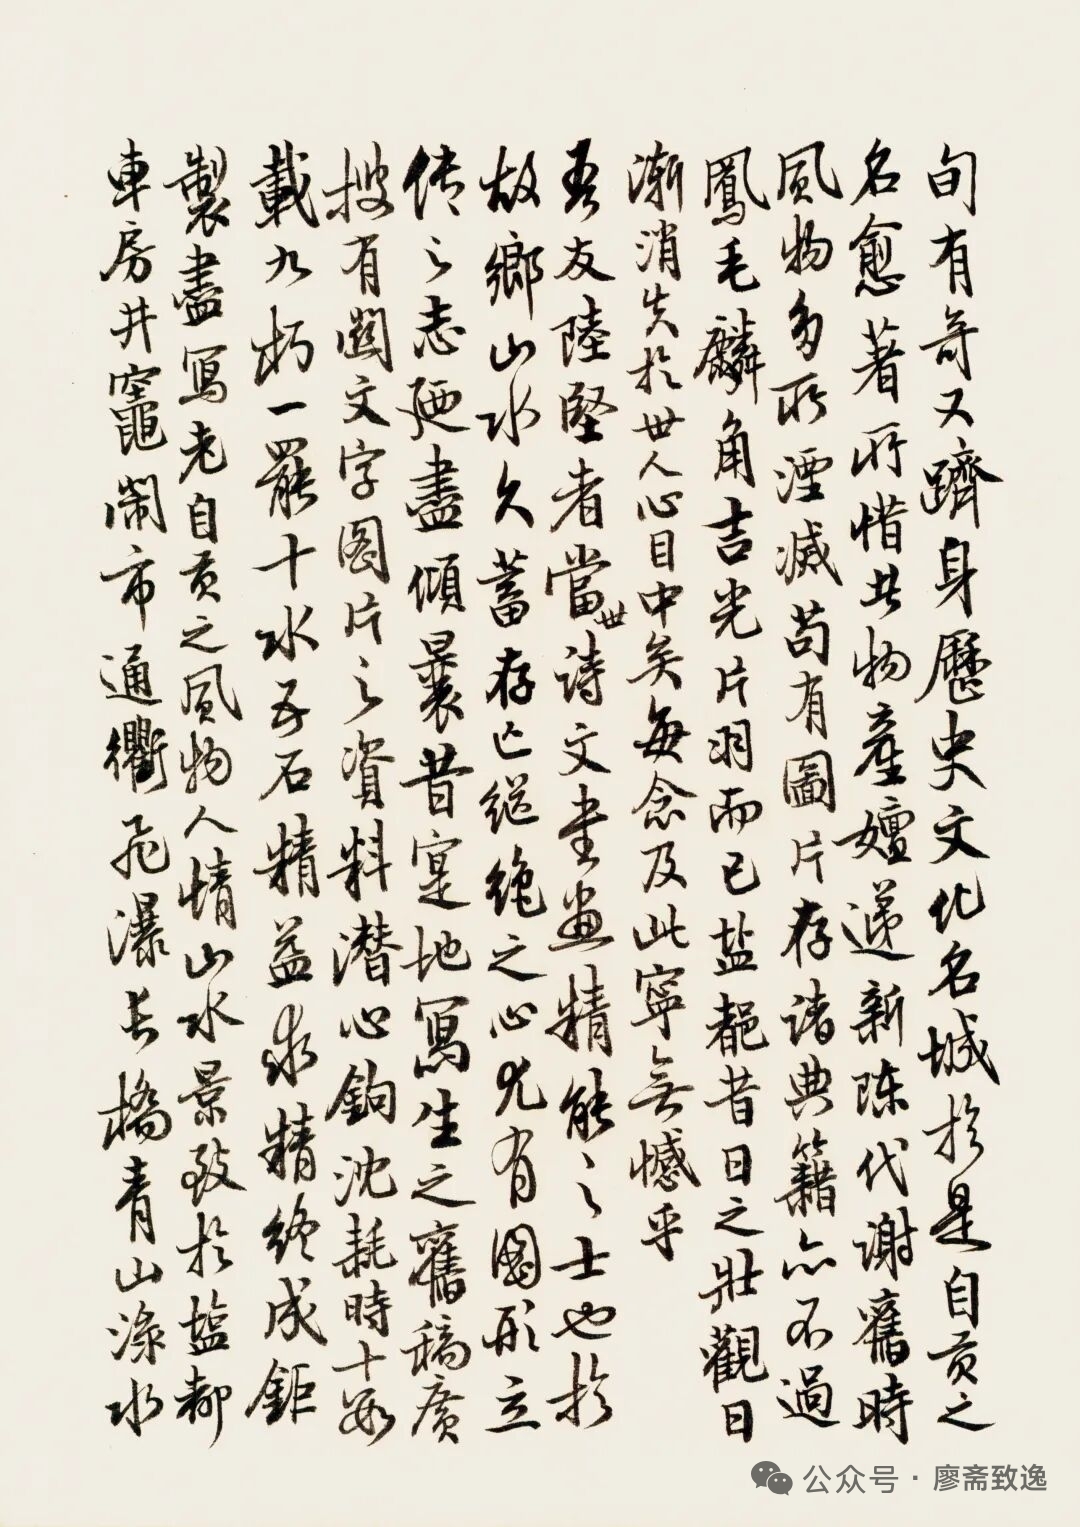 旬有奇又躋身歷史文化名城於是自贡之
名愈著所惜其物產嬗递新陈代谢舊時
風物多所湮滅苟有圖片存诸典籍亦不過
鳳毛麟角吉光片羽而已盐都昔日之壯觀日
漸消失於世人心目中矣每念及此寧無憾乎
吾友陸堅者當世诗文書畫精能之士也於
故鄉山水久蓄存亡继绝之心尤有圖形立
传之志迺盡傾曩昔寔地寫生之舊稿廣
搜有關文字图片之資料潜心鉤沈耗時十数
載九朽一罷十水五石精益求精终成鉅
製盡寫老自贡之風物人情山水景致於盐都
車房井竈鬧市通衢飛瀑長橋青山渌水
公众号·廖斋致逸